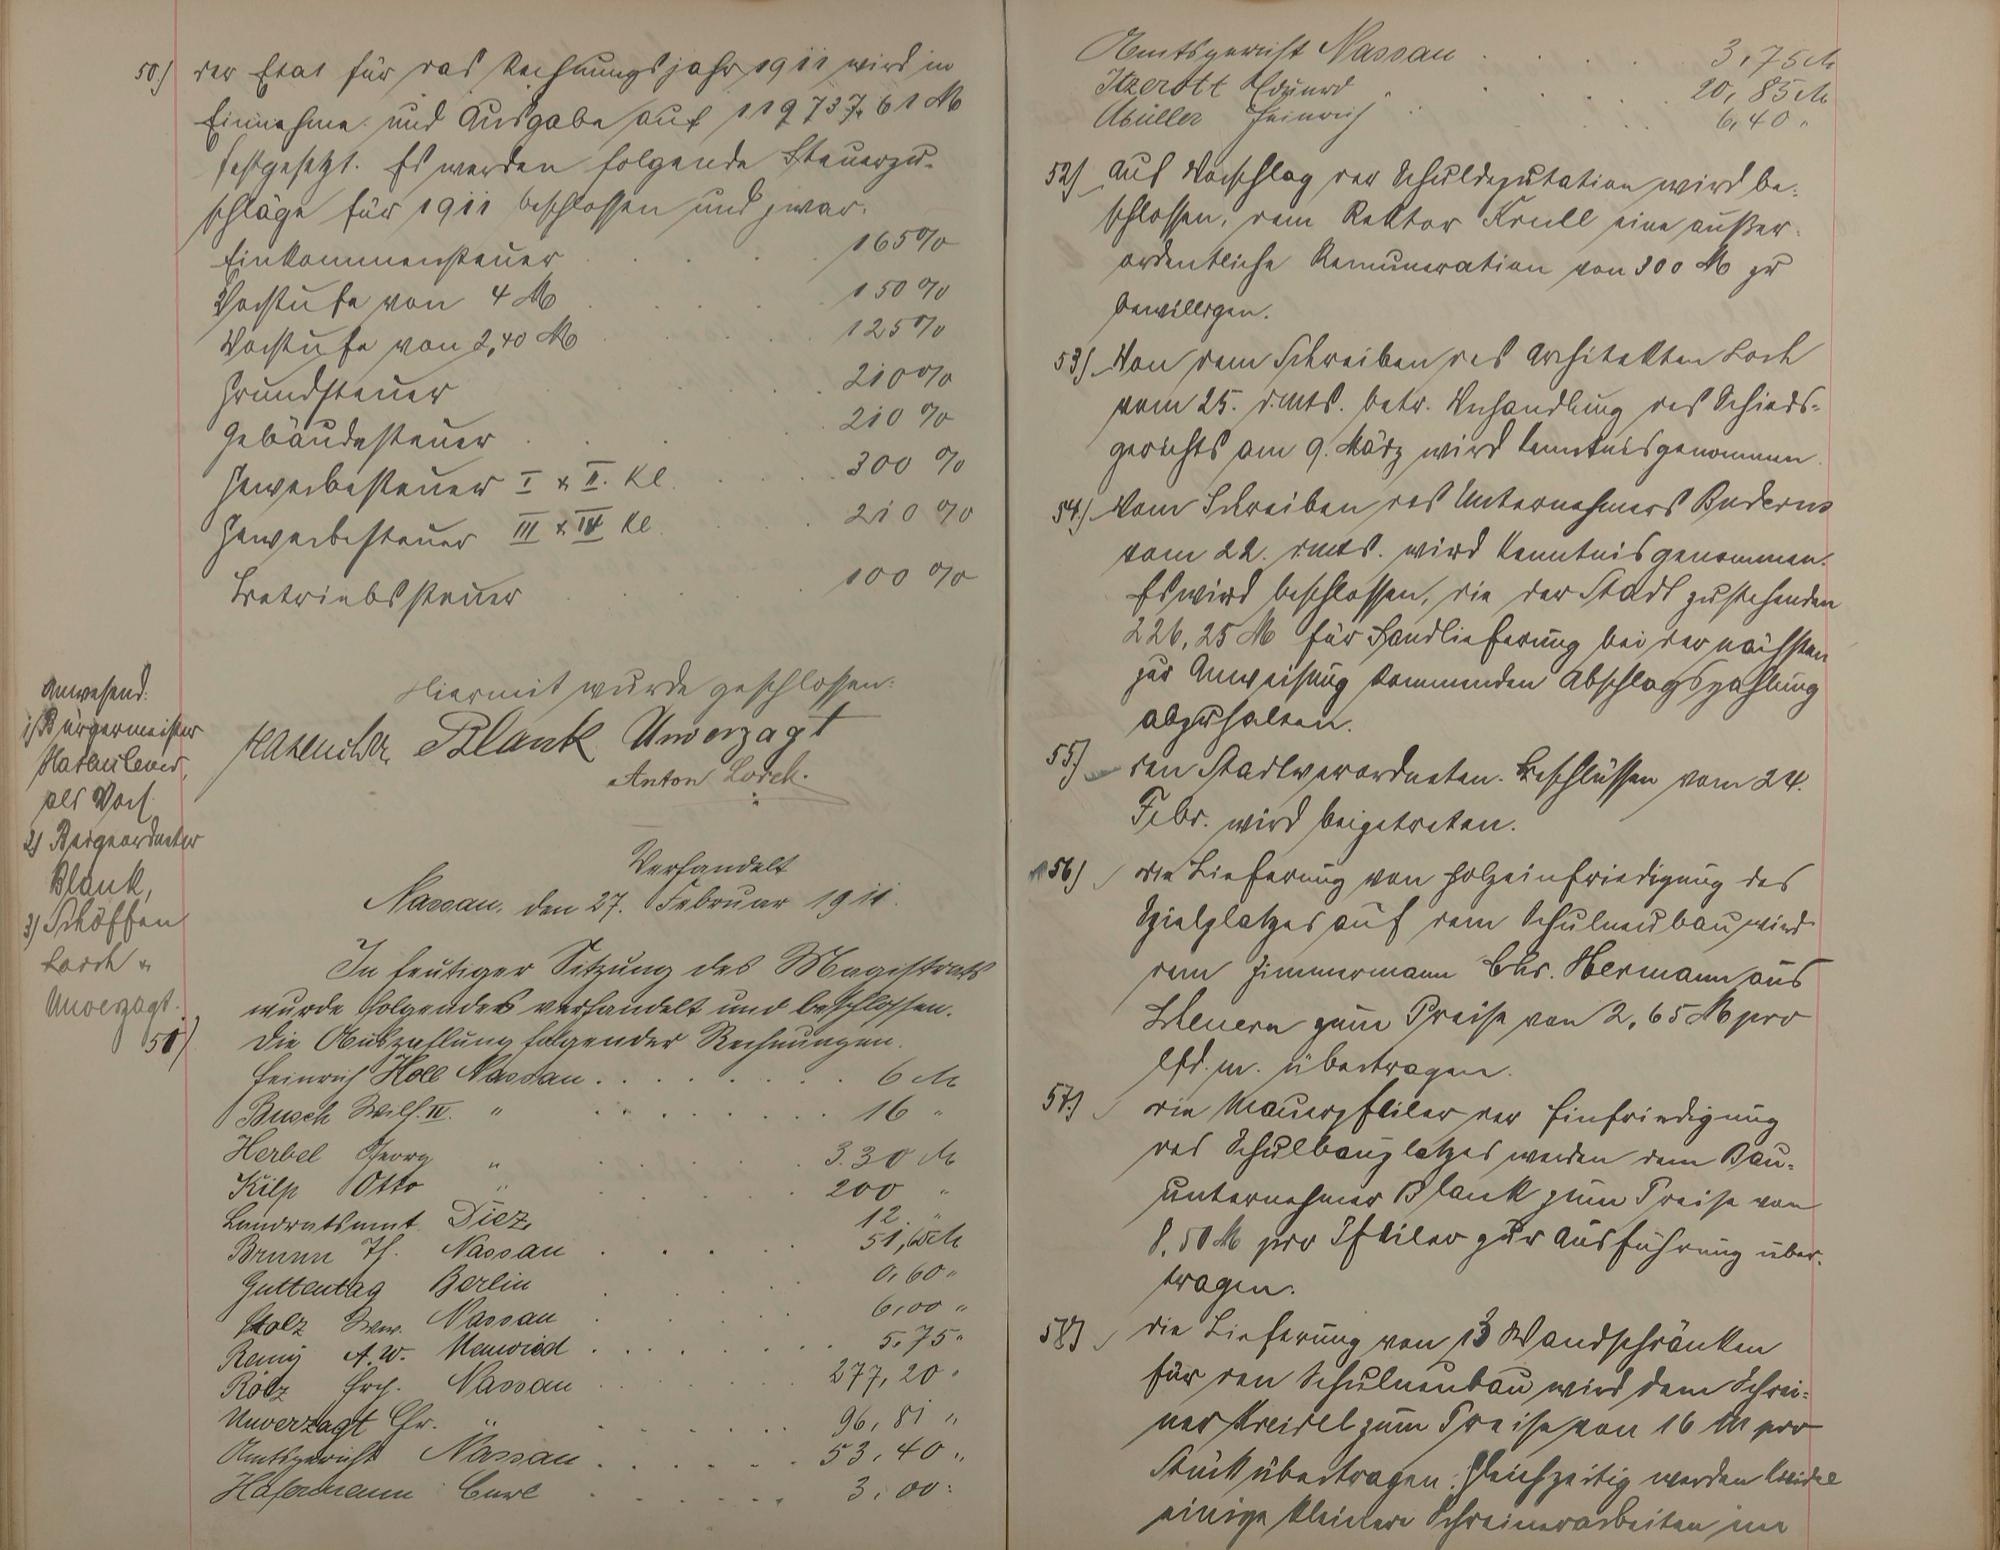 50.) der Etat für das Rechnungsjahr 1911 wird in
Einnahme und Ausgabe auf 119737,61 M
festgesetzt. Es werden folgende Steuerzu-
schläge für 1911 beschlossen und zwar:
Einkommensteuer . . . 165%
Vorstufe von 4 M . . . 150%
Vorstufe von 2,40 M . . . 125%
Grundsteuer . . . 210%
Gebäudesteuer . . . 210%
Gewerbesteuer I & II. Kl. . . . 300%
Gewerbesteuer III & IV Kl. . . . 210%
Betriebssteuer . . . 100%
Hiermit wurde geschlossen.
Hasenclever. Blank Unverzagt
Anton Lorch.
Anwesend:
1) Bürgermeister
Hasenclever,
als Vors.
2) Beigeordneter
Blank,
3) Schöffen
Lorch &
Unverzagt.
Verhandelt
Nassau, den 27. Februar 1911.
In heutiger Sitzung des Magistrats
wurde folgendes verhandelt und beschlossen.
51) Die Auszahlung folgender Rechnungen.
Heinrich Holl Nassau . . . 6 M
Busch Wilh. IV. " . . . 16 "
Herbel Georg " . . . 3.30 M
Kilp Otto " . . . 200 "
Landratsamt Diez 12 "
Brunn Th. Nassau . . . 51, M
Guttentag Berlin . . . 0,60 "
Stolz Wwe. Nassau . . . 6,00 "
Remy A. W. Neuwied . . . 5,75 "
Rölz Frch. Nassau . . . 277,20 "
Unverzagt Chr. " . . . 96,81 "
Amtsgericht Nassau . . . 53,40 "
Hafermann Carl . . . 3,00 "
Amtsgericht Nassau . . . 3,75 M
Itzerott Eduard " . . . 20,85 M
Müller Heinrich " . . . 6,40 "
52) Auf Vorschlag der Schuldeputation wird be-
schlossen, dem Rektor Krull eine außer-
ordentliche Remuneration von 300 M zu
bewilligen.
53) Von dem Schreiben des Architekten Loch
vom 25. d.mts. betr. Verhandlung des Schieds-
gerichts am 9. März wird Kenntnis genommen.
54) Vom Schreiben des Unternehmers Buderus
vom 22. d.mts. wird Kenntnis genommen.
Es wird beschlossen, die der Stadt zustehenden
226,25 M für Sandlieferung bei der nächsten
zur Anweisung kommenden Abschlagszahlung
abzuhalten.
55) den Stadtverordneten-Beschlüssen vom 24.
Febr. wird beigetreten.
56) die Lieferung von Holzeinfriedigung des
Spielplatzes auf dem Schulneubau wird
dem Zimmermann Chr. Hermann aus
Scheuern zum Preise von 2,65 M pro
lfd. m. übertragen.
57.) die Mauerpfeiler der Einfriedigung
des Schulbauplatzes werden dem Bau-
unternehmer Blank zum Preise von
8,50 M pro Pfeiler zur Ausführung über-
tragen.
58) die Lieferung von 13 Wandschränken
für den Schulneubau wird dem Schrei-
ner Kreidel zum Preise von 16 M pro
Stück übertragen. Gleichzeitig werden Kreidel
einige kleinere Schreinerarbeiten im